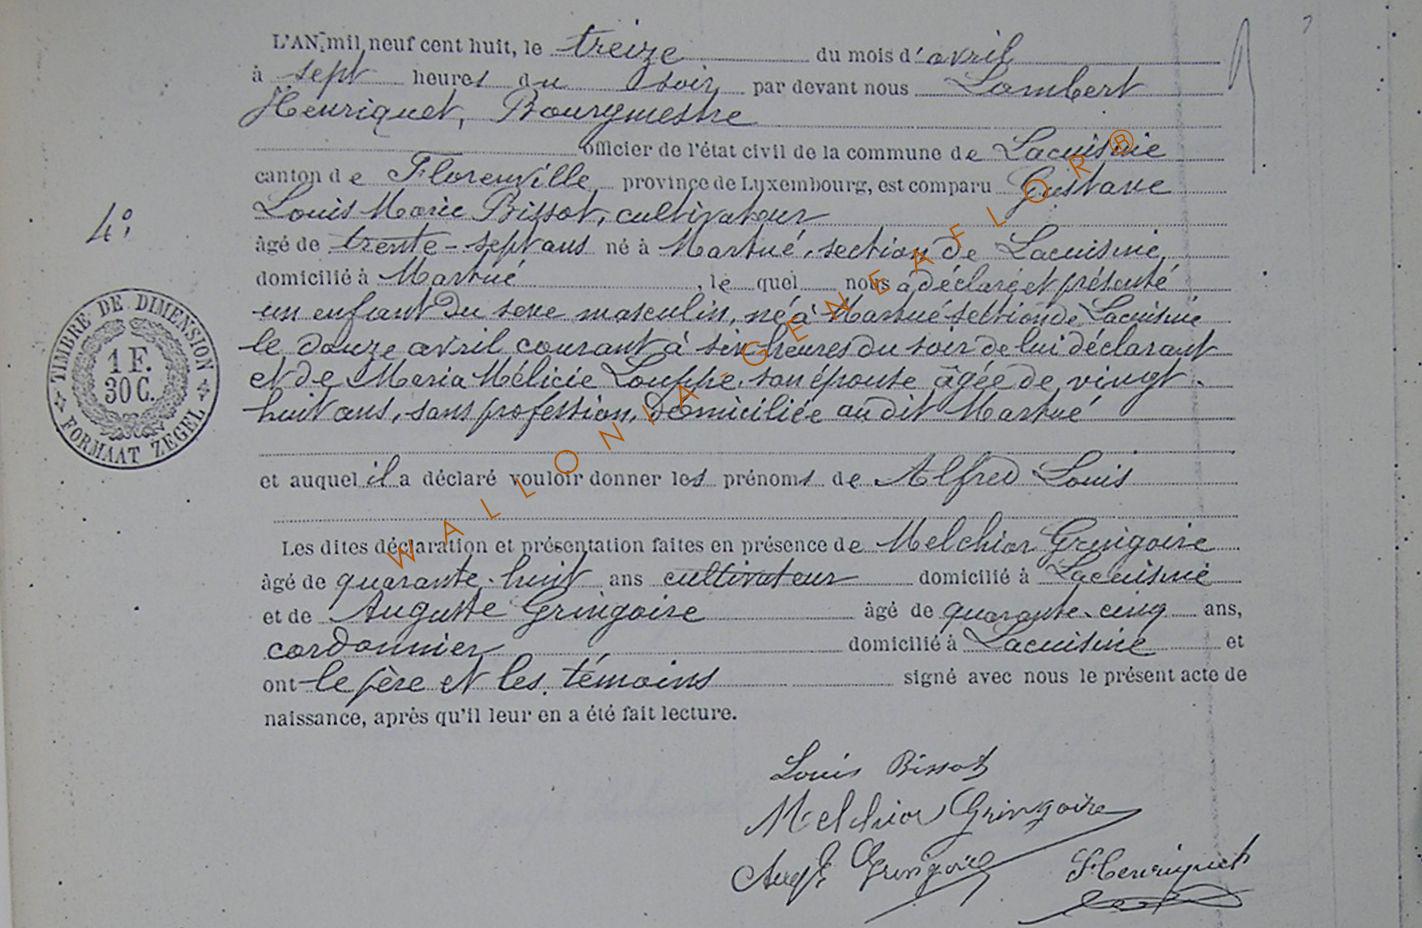 L'AN mil neuf cent huit, le treize du mois d'avril
à sept heures du soir par devant nous Lambert
Henriquet, Bourgmestre
officier de l'état civil de la commune de Lacuisine
canton de Florenville, province de Luxembourg, est comparu Gustave
Louis Marie Bissot, cultivateur
4°
âgé de trente-sept ans né à Martué, section de Lacuisine,
domicilié à Martué, le quel nous a déclaré et présenté
un enfant du sexe masculin, né à Martué section de Lacuisine
le douze avril courant à six heures du soir de lui déclarant
et de Maria Mélicie Louppe, son épouse âgée de vingt-
huit ans, sans profession, domiciliée au dit Martué
TIMBRE DE DIMENSION
1 F.
30 C.
FORMAAT ZEGEL
et auquel il a déclaré vouloir donner les prénoms de Alfred Louis
Les dites déclaration et présentation faites en présence de Melchior Gringoire
âgé de quarante-huit ans cultivateur domicilié à Lacuisine
et de Auguste Gringoire âgé de quarante-cinq ans,
cordonnier domicilié à Lacuisine et
ont le père et les témoins signé avec nous le présent acte de
naissance, après qu'il leur en a été fait lecture.
Louis Bissot
Melchior Gringoire
Aug. Gringoire Henriquet
WALLONIA-GENEAFLOR®